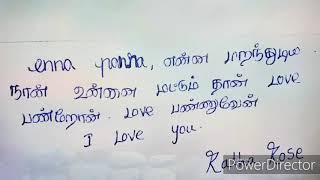 enna panna, என்ன மறந்துடிம
நான் உன்னை மட்டும் தான் love
பண்றேன். Love பண்ணுவேன்
I love you.
Rose
PowerDirector